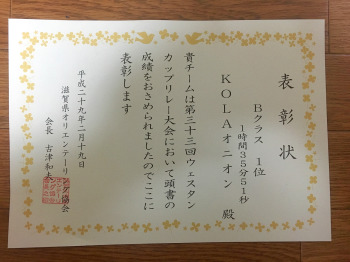 表彰状
Bクラス 1位
1時間35分51秒
KOLAオニオン 殿
貴チームは第三十三回ウェスタン
カップリレー大会において頭書の
成績をおさめられましたのでここに
表彰します
平成二十九年二月十九日
滋賀県オリエンテーリング協会
会長 古津和夫